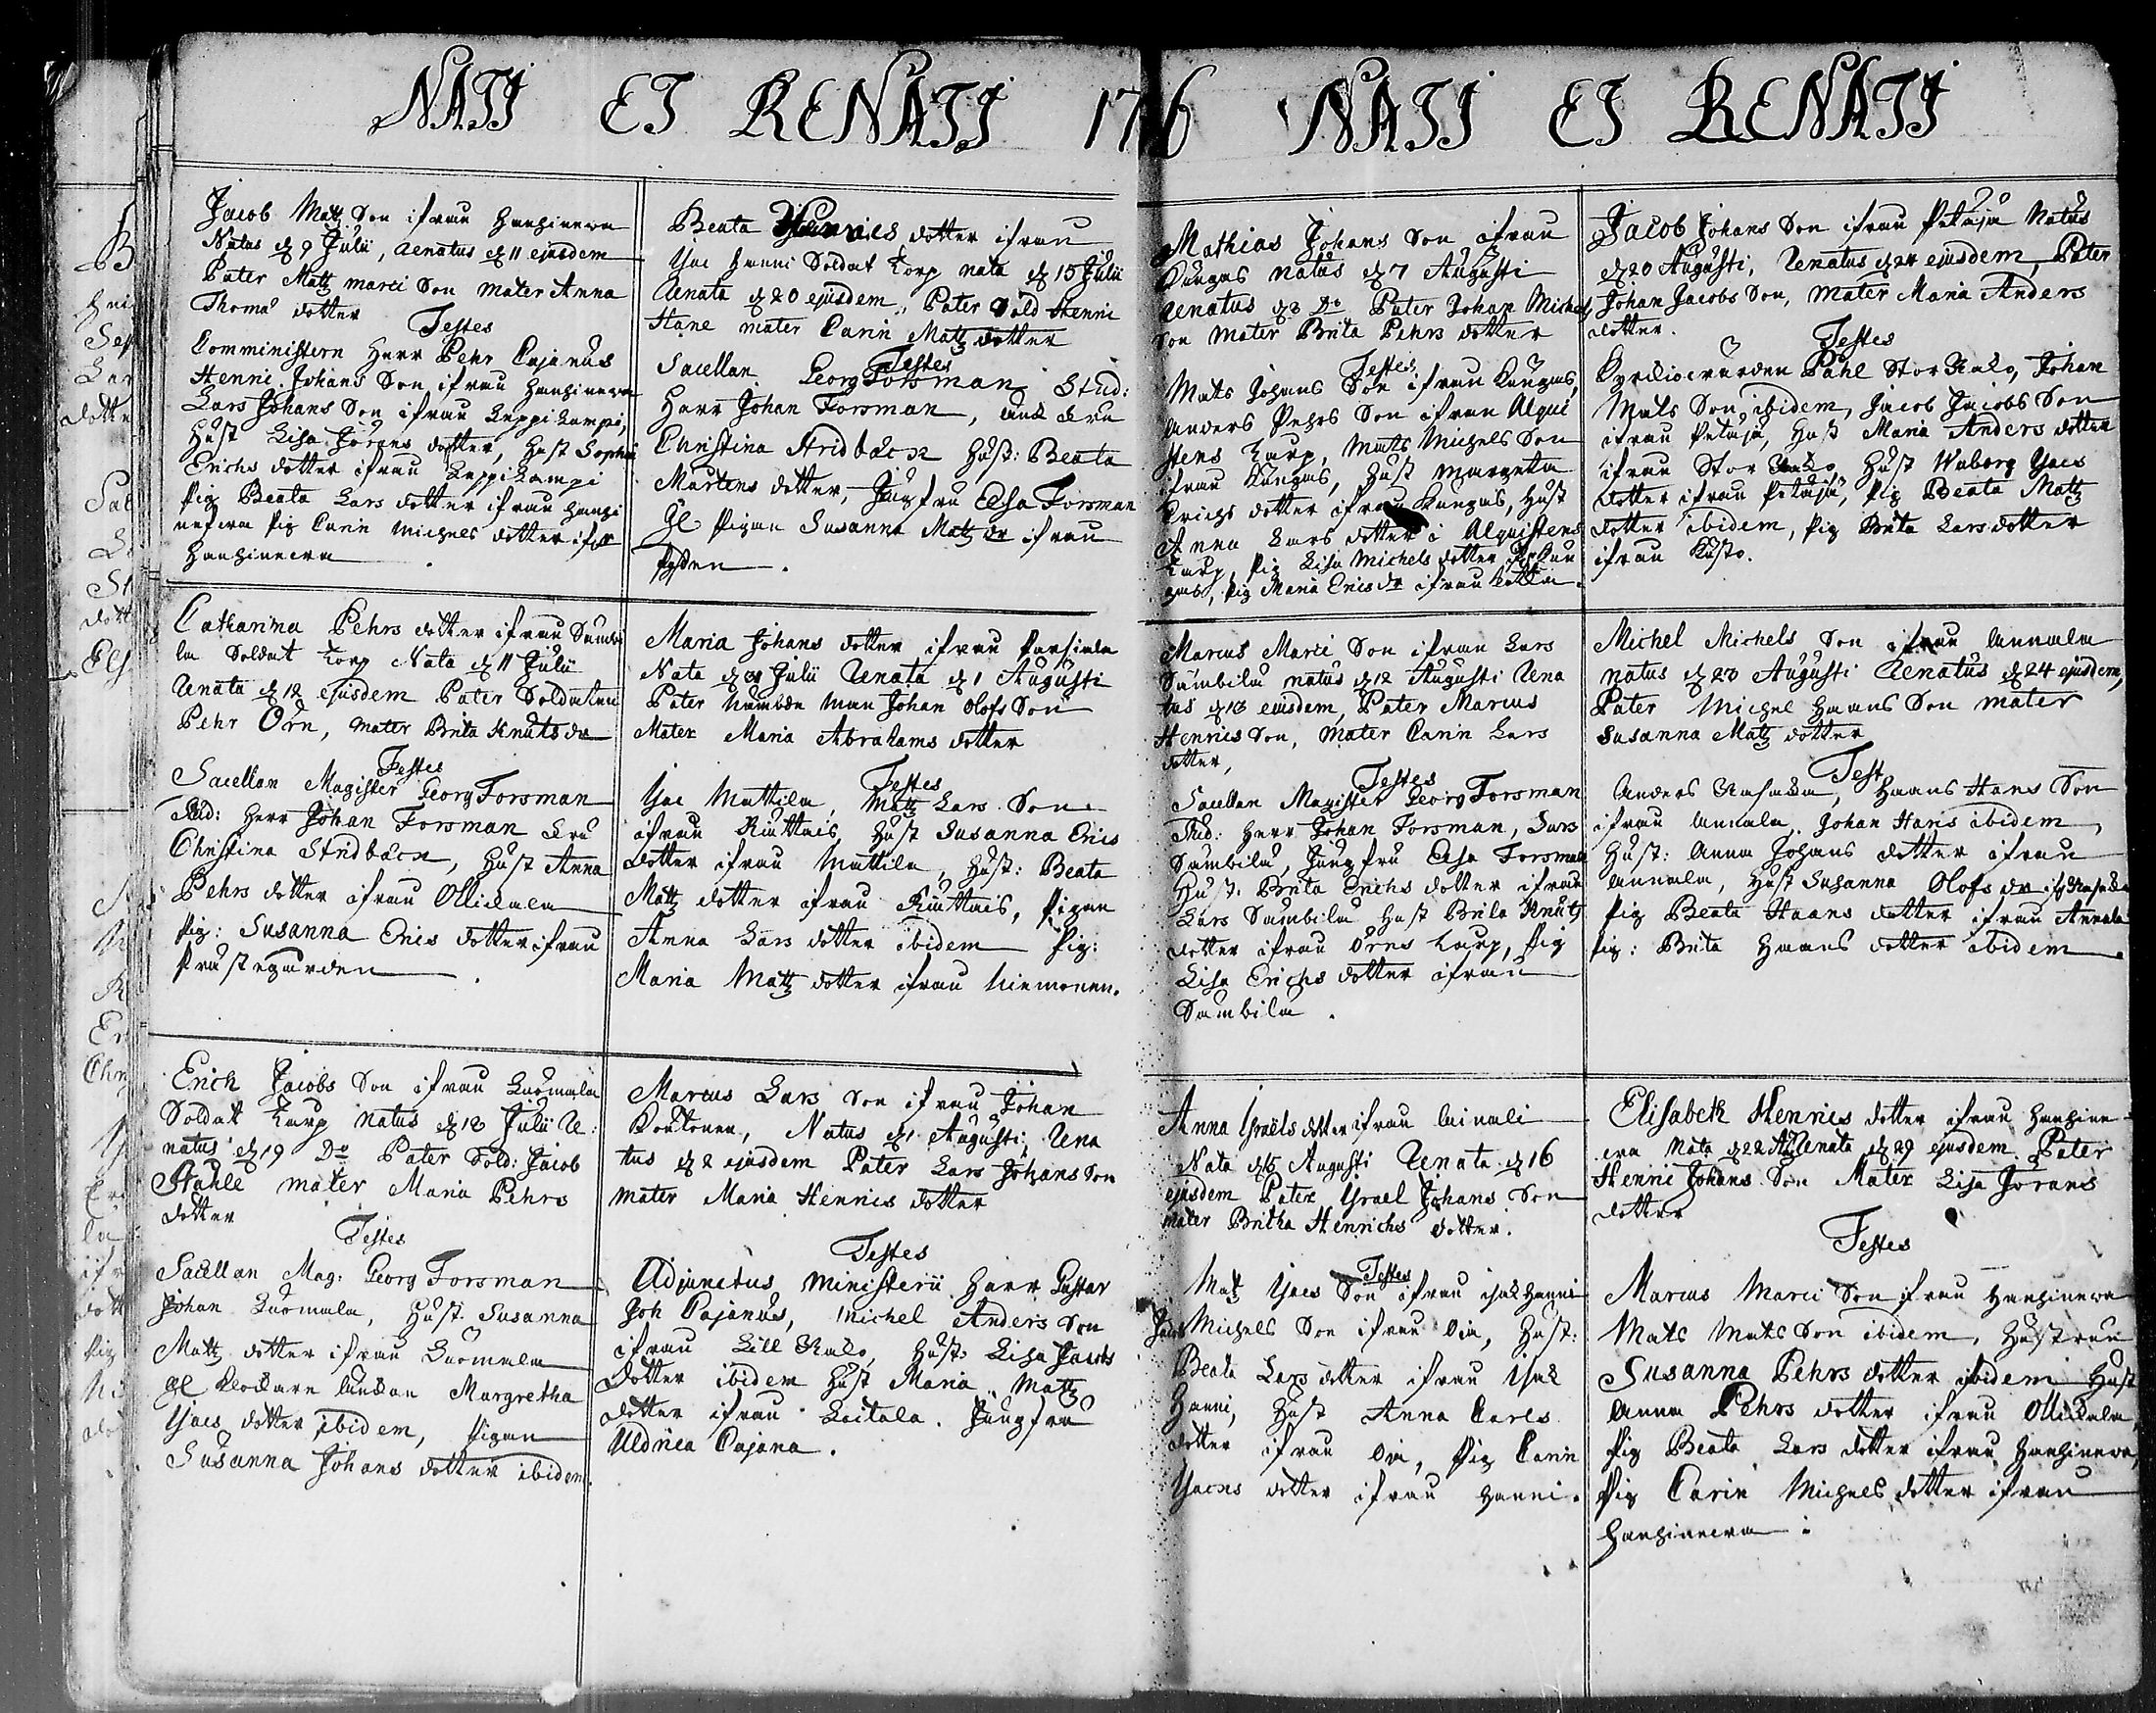 NATI ET RENATI 17 6 NATI ET RENATI
Jacob Matz Son ifrån
Natus d 9 Julii, Renatus d 11 ejusdem
Pater Matz Marci Son Mater Anna
Thomæ dotter
Testes
Comministern Herr Pehr Cajanus
Henric Johans Son ifrån
Lars Johans Son ifrån Leppikampi,
Hust Lisa Jörans dotter, Hust Sophia
Erichs dotter ifrån Leppikampi
Pig Beata Lars dotter ifrån
Pig Carin Michels dotter ifrån

Catharina Pehrs dotter ifrån
Soldat Torp Nata d 11 Julii
Renata d 12 ejusdem Pater Soldaten
Pehr Örn, Mater Brita Knuts dr
Testes
Sacellan Magister Georg Forsman
Stud: Herr Johan Forsman Fru
Christina Stridbäck, Hust Anna
Pehrs dotter ifrån Ollikala
Pig: Susanna Erics dotter ifrån
Prästegården
Erich Jacobs Son ifrån Luomala
Soldat Torp Natus d 18 Julii Re
natus d 19 Do Pater Sold: Jacob
Ståhle mater Maria Pehrs
dotter
Testes
Sacellan Mag: Georg Forsman
Johan Luomala, Hust. Susanna
Matz dotter ifrån Luomala
Gl Klockare Margretha
Isacs dotter ibidem, Pigan
Susanna Johans dotter ibidem
Beata Henrics dotter ifrån
Isac Hanni Soldat Torp nata d 15 Julii
Renata d 20 ejusdem, Pater Sold Henric
Hane mater Carin Matz dotter
Testes
Sacellan Georg Forsman Stud:
Herr Johan Forsman, Fru
Christina Stridbäck Hust: Beata
Mårtens dotter, Jungfru Elsa Forsman
Gl Pigan Susanna Matz dr ifrån

Maria Johans dotter ifrån
Nata d Julii Renata d 1 Augusti
Pater Nämbde Man Johan Olofs Son
Mater Maria Abrahams dotter
Testes
Isac Mattila, Matz Lars Son
ifrån Riuttais, Hust Susanna Erics
dotter ifrån Mattila, Hust: Beata
Matz dotter ifrån Riuttais, Pigan
Anna Lars dotter ibidem Pig:
Maria Matz dotter ifrån Niemonen.
Marcus Lars Son ifrån Johan
Natus d 1 Augusti, Rena
tus d 2 ejusdem Pater Lars Johans Son
mater Maria Henrics dotter
Testes
Adjunctus Ministerii Herr Gustav
Joh Cajanus, Michel Anders Son
ifrån Lill Kalo, Hust: Lisa Jacobs
Dotter ibidem Hust Maria Matz
dotter ifrån Laitala. Jungfru
Uldrica Cajana.
Mathias Johans Son ifrån
Kangas natus d 7 Augusti
Renatus d 8 Do Pater Johan Michels
Son Mater Brita Pehrs dotter
Testes
Mats Johans Son ifrån Kangas,
Anders Pehrs Son ifrån Alqui
stens Torp, Mats Michels Son
ifrån Kangas, Hust Margeta
Erichs dotter ifrån Kangas, Hust
Anna Lars dotter i Alquistens
Torp, Pig Lisa Michels dotter Kan
gas, Pig Maria Erics dr ifrån
Marcus Marci Son ifrån Lars
Sämbilä natus d 12 Augusti Rena
tus d 13 ejusdem, Pater Marcus
Henrics Son, Mater Carin Lars
dotter,
Testes
Sacellan Magister Georg Forsman
Stud: Herr Johan Forsman, Lars
Sämbilä, Jungfru Elsa Forsman
Hust: Brita Erichs dotter ifrån
Lars Sämbilä Hust Brita Knutz
dotter ifrån Örns Torp, Pig
Lisa Erichs dotter ifrån
Sämbilä.
Anna Israels dotter ifrån Ainali
Nata d 15 Augusti Renata d 16
ejusdem Pater Israel Johans Son
mater Britha Henrichs dotter.
Testes
Matz Isacs Son ifrån Isak Hanni
Jacob Michels Son ifrån Oia, Hust:
Beata Lars dotter ifrån Isak
Hanni, Hust Anna Carls
dotter ifrån Oia, Pig Carin
Isacks dotter ifrån Hanni.
Jacob Johans Son ifrån Petäjä Natus
d 20 Augusti, Renatus d 24 ejusdem, Pater
Johan Jacobs Son, Mater Maria Anders
dotter.
Testes
Kyrkiovärden Påhl Stor Kalo, Johan
Mats Son ibidem, Jacob Jacobs Son
ifrån Petäjä, Hust Maria Anders dotter
ifrån Stor Kalo, Hust Waborg Isacs
dotter ifrån Petäjä, Pig Beata Matz
dotter ibidem, Pig Brita Lars dotter
ifrån Kusto.
Michel Michels Son ifrån Annala
natus d 23 Augusti Renatus d 24 ejusdem,
Pater Michel Hans Son mater
Susanna Matz dotter
Test
Anders, Hans Hans Son
ifrån Annala. Johan Hans ibidem,
Hust: Anna Johans dotter ifrån
Annala, Hust Susanna Olofs dr
Pig Beata Hans dotter ifrån Annala
Pig: Brita Hans dotter ibidem.
Elisabeth Henrics dotter ifrån
Nata d 22 Renata d 29 ejusdem Pater
Henric Johans Son Mater Lisa Jörans
dotter
Testes
Marcus Marci Son ifrån
Mats Mats Son ibidem, Hustrun
Susanna Pehrs dotter ibidem Hust
Anna Pehrs dotter ifrån Ollikala
Pig Beata Lars dotter ifrån
Pig Carin Michels dotter ifrån